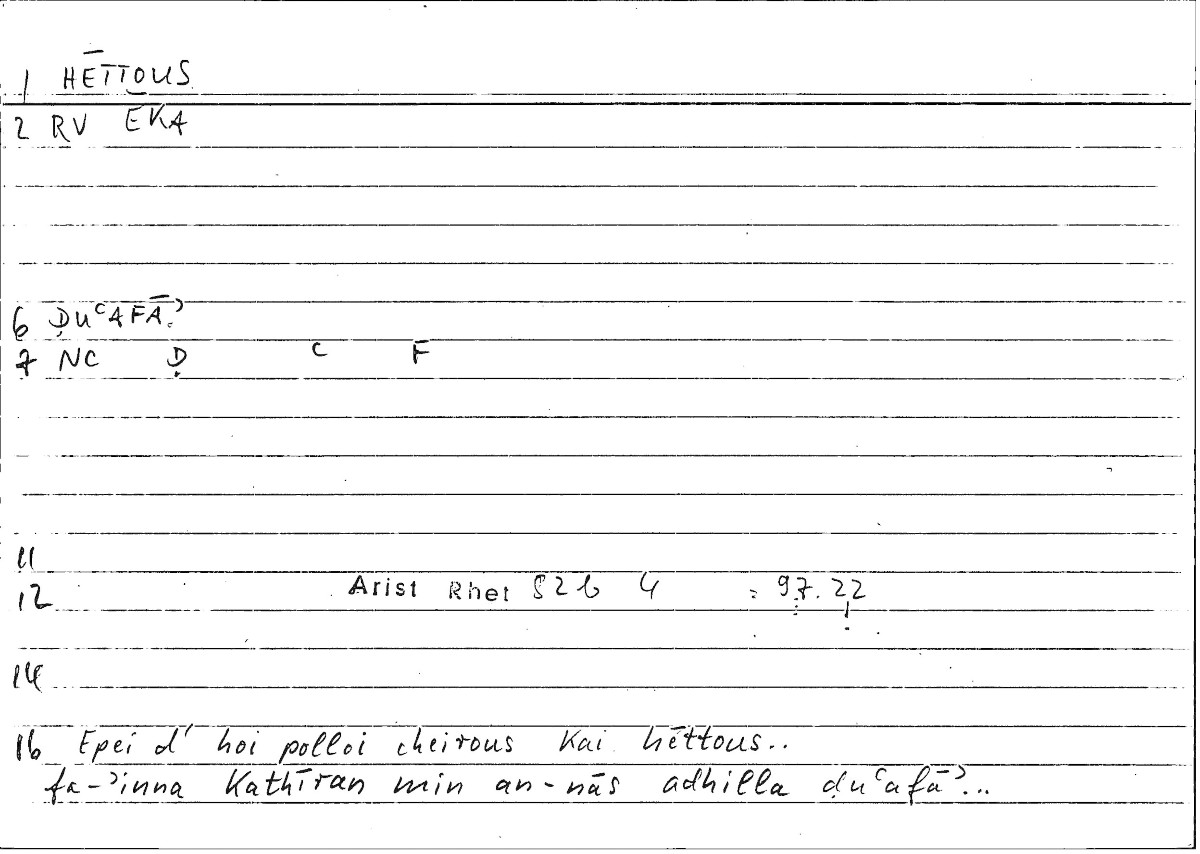 1 HĒTTOUS
2 RV EKA
6 ḌUʿAFĀʾ
7 NC Ḍ ʿ F
11
12 Arist Rhet 82b 4 = 97.22
14
16 Epei d' hoi polloi cheirous kai hēttous..
fa-ʾinna Kathīran min an-nās adhilla ḍuʿafāʾ...